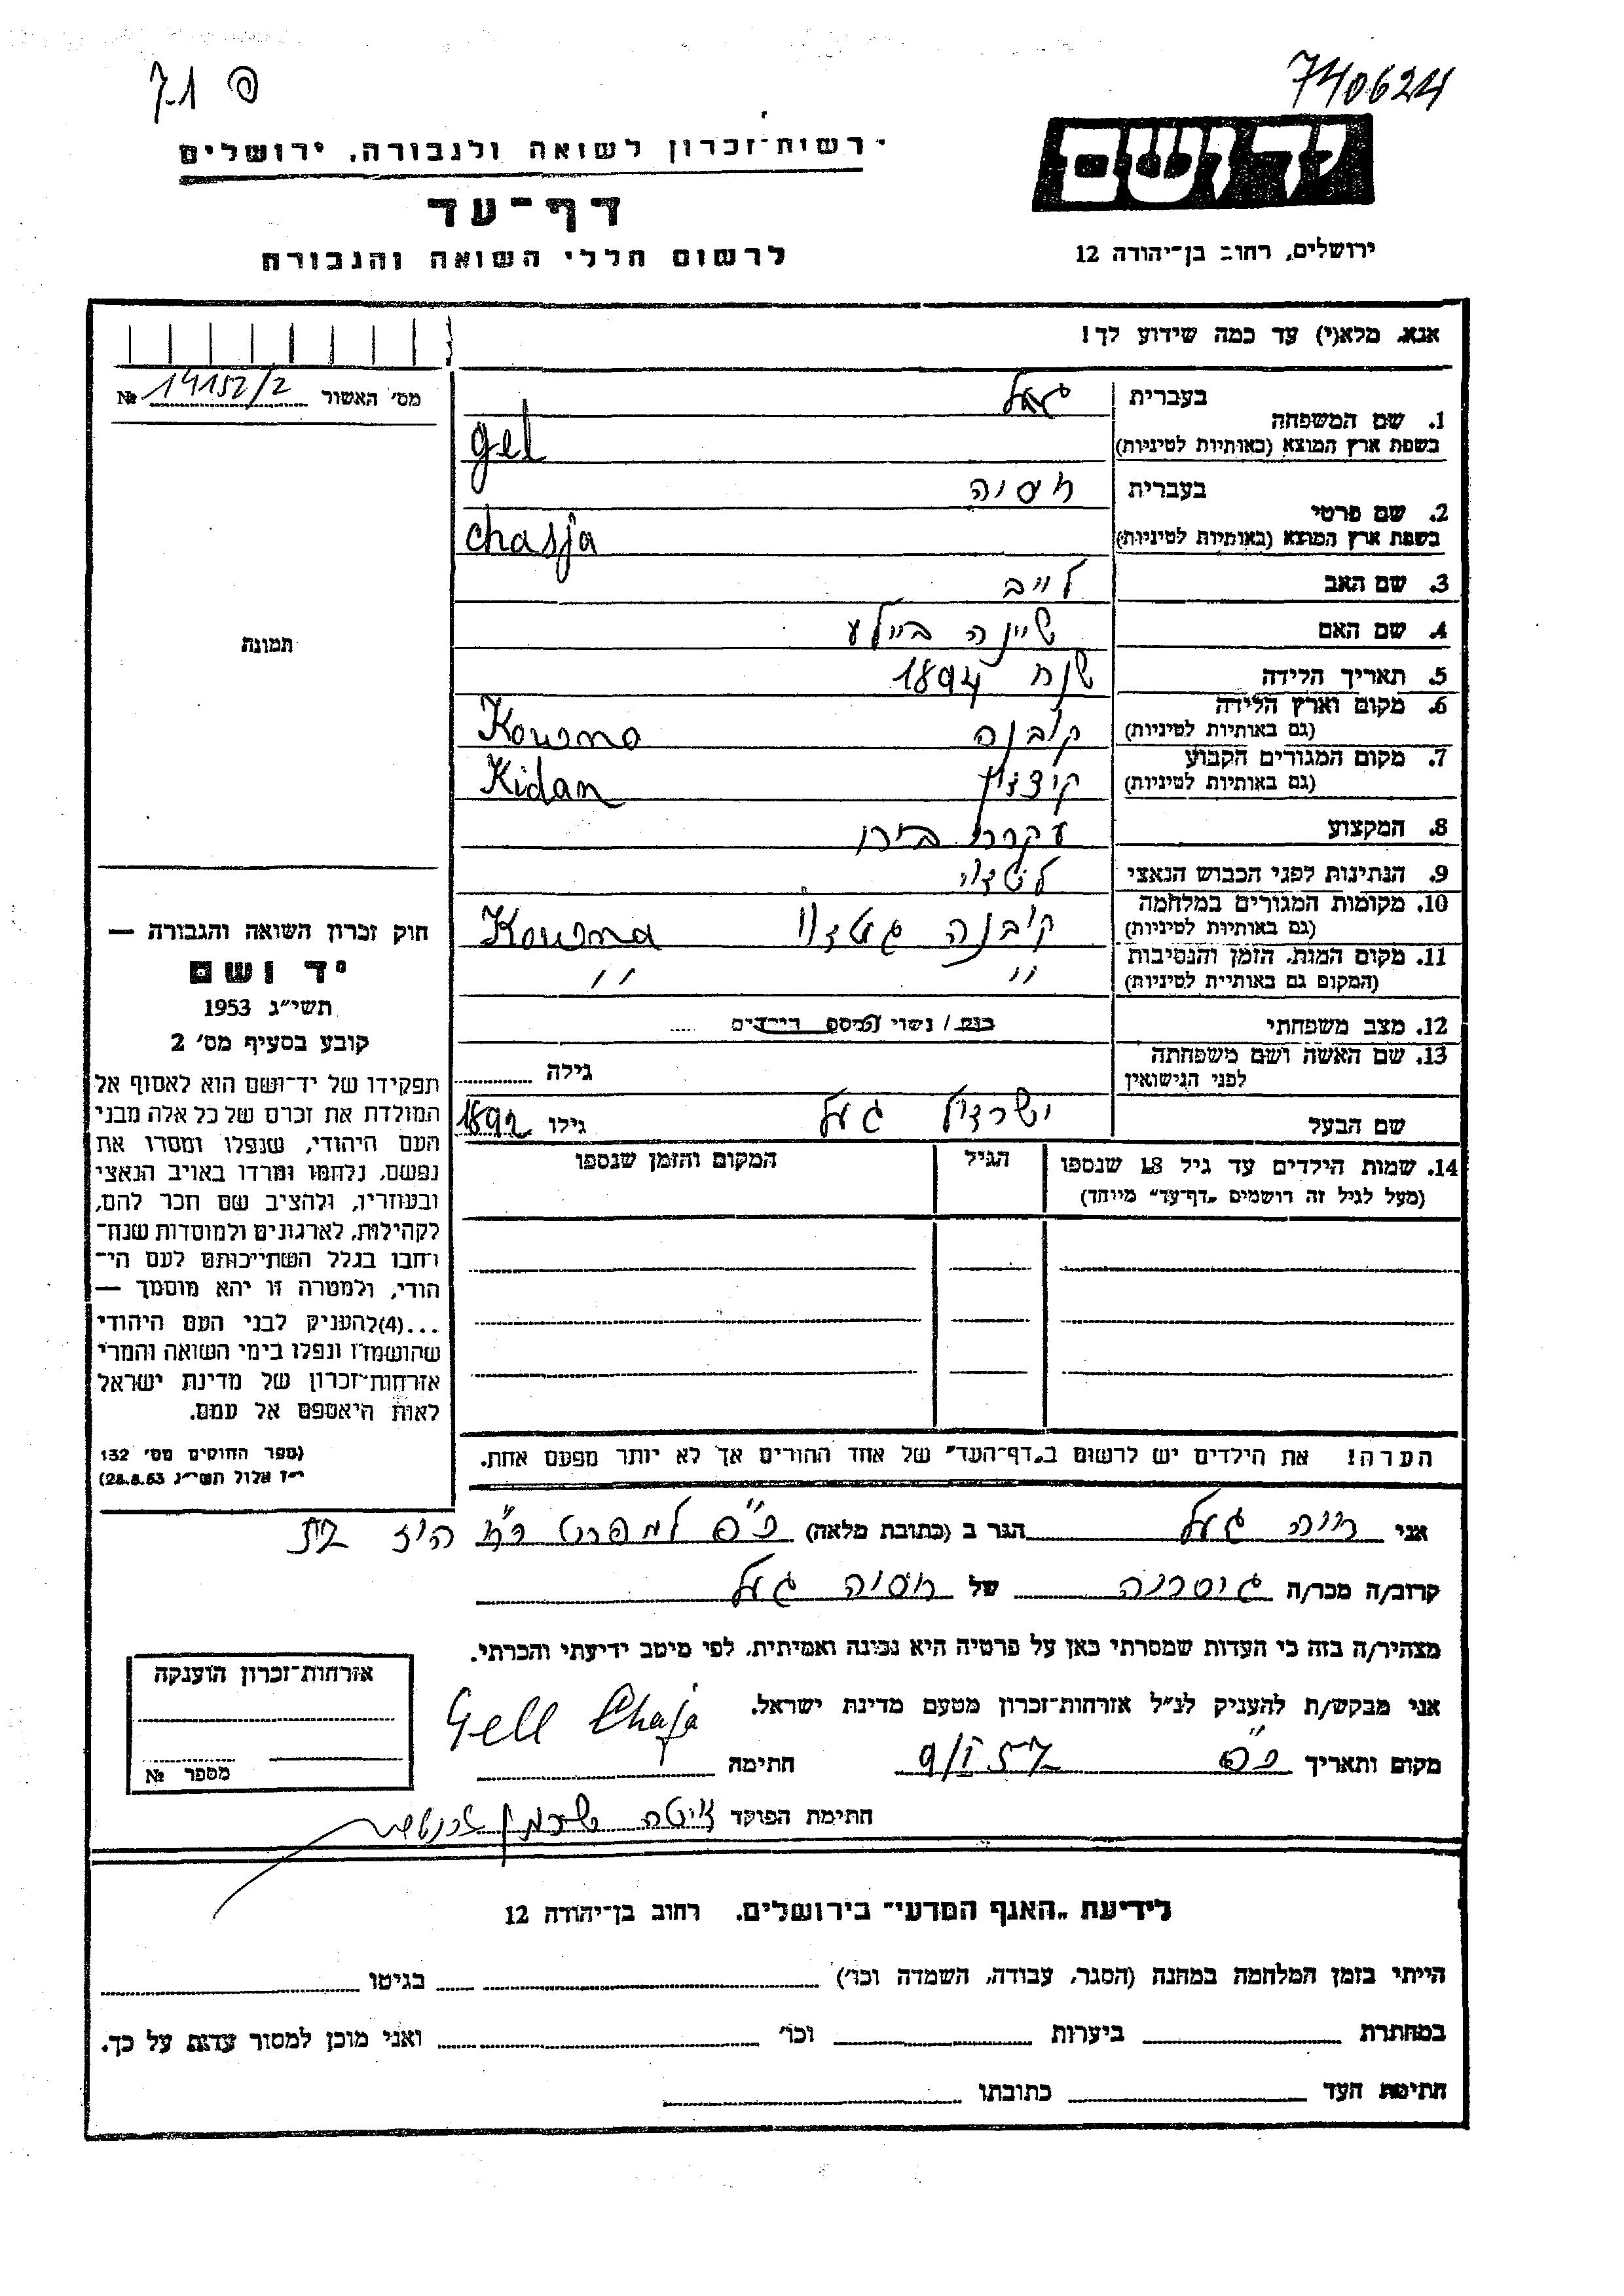 7.1 פ
740624
רשות־זכרון לשואה ולגבורה, ירושלים
יד ושם
דף־עד
לרשום חללי השואה והגבורה
ירושלים, רחוב בן־יהודה 12
אנא, מלא(י) עד כמה שידוע לך!
מס׳ האשור 14152/2 №
1. שם המשפחה
בעברית געל
בשפת ארץ המוצא (באותיות לטיניות) gel
2. שם פרטי
בעברית חסיה
בשפת ארץ המוצא (באותיות לטיניות) chasja
3. שם האב לייב
4. שם האם שיינה ביילע
5. תאריך הלידה שנת 1894
6. מקום וארץ הלידה
(גם באותיות לטיניות) קובנה Kowno
7. מקום המגורים הקבוע
(גם באותיות לטיניות) Kidan
8. המקצוע עקרת בית
9. הנתינות לפני הכבוש הנאצי
10. מקומות המגורים במלחמה
(גם באותיות לטיניות) קובנה גטו Kowna
11. מקום המות, הזמן והנסיבות
(המקום גם באותיות לטיניות) " "
12. מצב משפחתי רווק / נשוי מספר הילדים ....
13. שם האשה ושם משפחתה
לפני הנישואין גילה
שם הבעל ישראל געל גילו 1892
14. שמות הילדים עד גיל 18 שנספו
(מעל לגיל זה רושמים „דף־עד״ מיוחד)
הגיל
המקום והזמן שנספו
הערה! את הילדים יש לרשום ב„דף־העד״ של אחד ההורים אך לא יותר מפעם אחת.
תמונה
חוק זכרון השואה והגבורה —
יד ושם
תשי״ג 1953
קובע בסעיף מס׳ 2
תפקידו של יד־ושם הוא לאסוף אל
המולדת את זכרם של כל אלה מבני
העם היהודי, שנפלו ומסרו את
נפשם, נלחמו ומרדו באויב הנאצי
ובעוזריו, ולהציב שם וזכר להם,
לקהילות, לארגונים ולמוסדות שנח־
רבו בגלל השתייכותם לעם הי־
הודי, ולמטרה זו יהא מוסמך —
...(4)להעניק לבני העם היהודי
שהושמדו ונפלו בימי השואה והמרי
אזרחות־זכרון של מדינת ישראל
לאות היאספם אל עמם.
(ספר החוקים מס׳ 132
י״ז אלול תשי״ג 28.8.53)
אני חיה געל הגר ב (כתובת מלאה)
קרוב/ה מכר/ה גיסתה של חסיה געל
מצהיר/ה בזה כי העדות שמסרתי כאן על פרטיה היא נכונה ואמיתית, לפי מיטב ידיעתי והכרתי.
אני מבקש/ת להעניק לנ״ל אזרחות־זכרון מטעם מדינת ישראל.
מקום ותאריך 9/I 57 חתימה Gell Chaja
חתימת הפוקד
אזרחות־זכרון הוענקה
מספר №
לידיעת „האגף המדעי״ בירושלים, רחוב בן־יהודה 12
הייתי בזמן המלחמה במחנה (הסגר, עבודה, השמדה וכו׳) בגיטו
במחתרת ביערות וכו׳ ואני מוכן למסור עדות על כך.
חתימת העד כתובתו